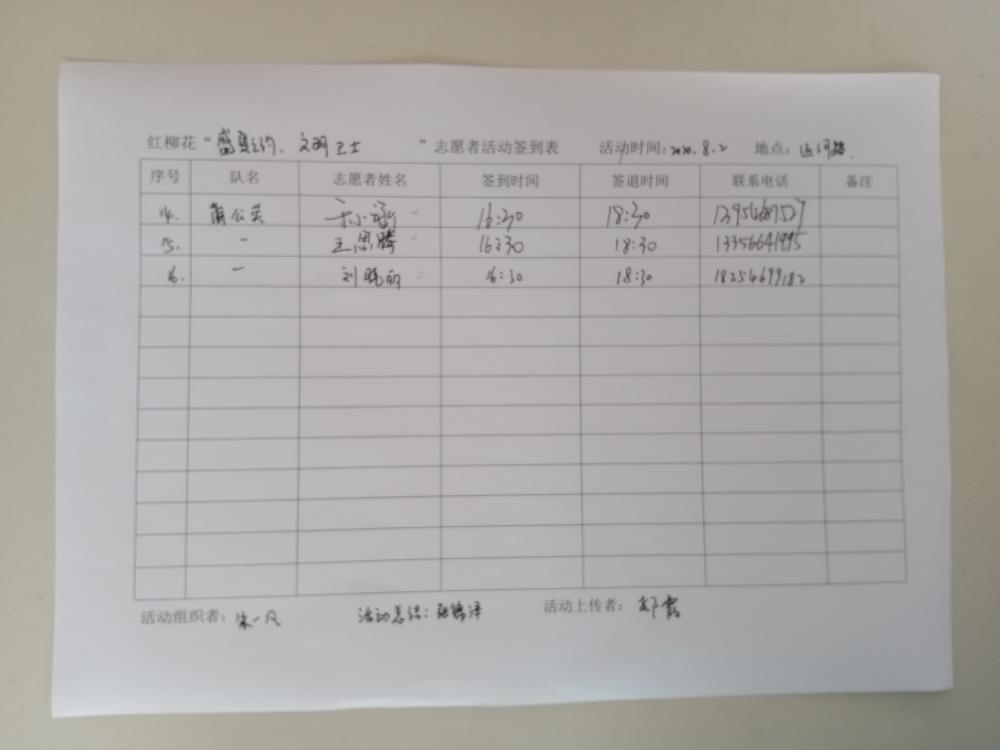 红柳花“盛夏之约、文明卫士”志愿者活动签到表 活动时间:2020.8.2 地点:
序号 队名 志愿者姓名 签到时间 签退时间 联系电话 备注
14. 蒲公英 16:30 18:30
15. 〃 王思腾 16:30 18:30 13356641995
16. 〃 刘晓丽 16:30 18:30 18254699182
活动组织者: 宋一凡 活动总结: 活动上传者: 郑露